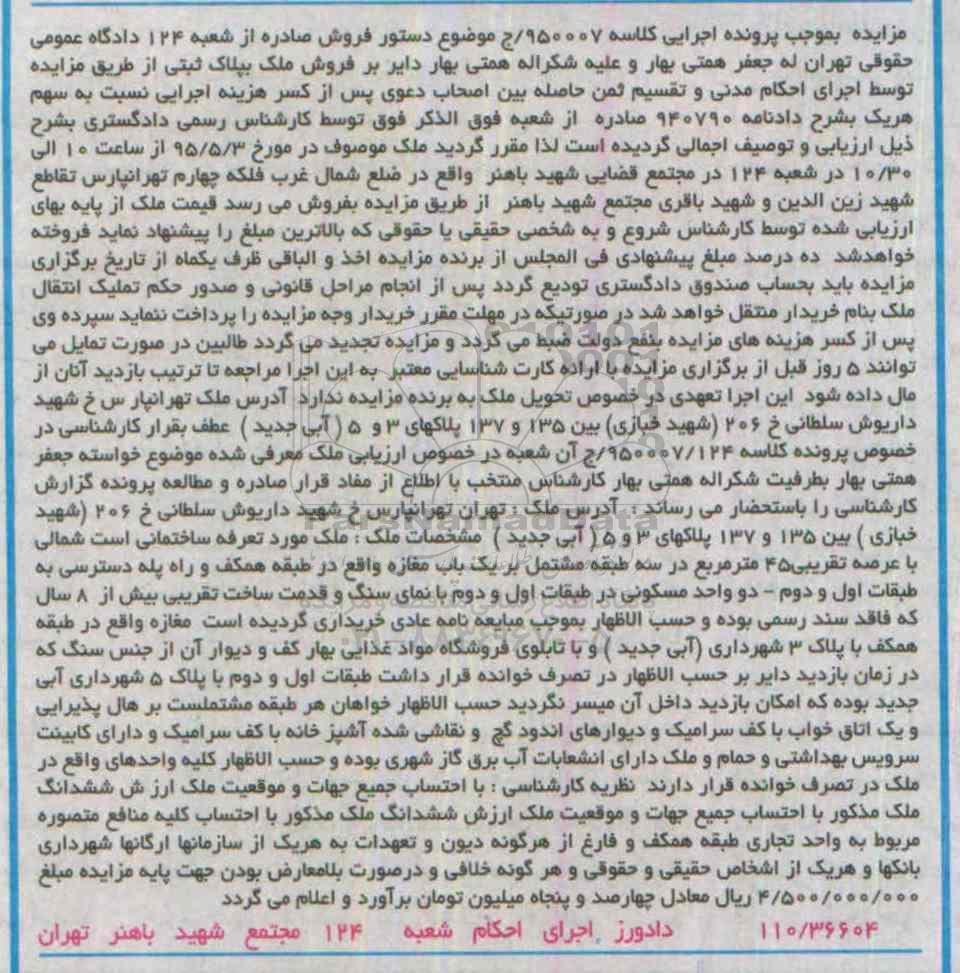 مزایده بموجب پرونده اجرایی کلاسه ۹۵۰۰۰۷/ج موضوع دستور فروش صادره از شعبه ۱۲۴ دادگاه عمومی
حقوقی تهران له جعفر همتی بهار و علیه شکراله همتی بهار دایر بر فروش ملک بپلاک ثبتی از طریق مزایده
توسط اجرای احکام مدنی و تقسیم ثمن حاصله بین اصحاب دعوی پس از کسر هزینه اجرایی نسبت به سهم
هریک بشرح دادنامه ۹۴۰۷۹۰ صادره از شعبه فوق الذکر فوق توسط کارشناس رسمی دادگستری بشرح
ذیل ارزیابی و توصیف اجمالی گردیده است لذا مقرر گردید ملک موصوف در مورخ ۹۵/۵/۳ از ساعت ۱۰ الی
۱۰/۳۰ در شعبه ۱۲۴ در مجتمع قضایی شهید باهنر واقع در ضلع شمال غرب فلکه چهارم تهرانپارس تقاطع
شهید زین الدین و شهید باقری مجتمع شهید باهنر از طریق مزایده بفروش می رسد قیمت ملک از پایه بهای
ارزیابی شده توسط کارشناس شروع و به شخصی حقیقی یا حقوقی که بالاترین مبلغ را پیشنهاد نماید فروخته
خواهدشد ده درصد مبلغ پیشنهادی فی المجلس از برنده مزایده اخذ و الباقی ظرف یکماه از تاریخ برگزاری
مزایده باید بحساب صندوق دادگستری تودیع گردد پس از انجام مراحل قانونی و صدور حکم تملیک انتقال
ملک بنام خریدار منتقل خواهد شد در صورتیکه در مهلت مقرر خریدار وجه مزایده را پرداخت ننماید سپرده وی
پس از کسر هزینه های مزایده بنفع دولت ضبط می گردد و مزایده تجدید می گردد طالبین در صورت تمایل می
توانند ۵ روز قبل از برگزاری مزایده با ارائه کارت شناسایی معتبر به این اجرا مراجعه تا ترتیب بازدید آنان از
مال داده شود این اجرا تعهدی در خصوص تحویل ملک به برنده مزایده ندارد آدرس ملک تهرانپار س خ شهید
داریوش سلطانی خ ۲۰۶ (شهید خبازی) بین ۱۳۵ و ۱۳۷ پلاکهای ۳ و ۵ ( آبی جدید ) عطف بقرار کارشناسی در
خصوص پرونده کلاسه ۹۵۰۰۰۷/۱۲۴/ج آن شعبه در خصوص ارزیابی ملک معرفی شده موضوع خواسته جعفر
همتی بهار بطرفیت شکراله همتی بهار کارشناس منتخب با اطلاع از مفاد قرار صادره و مطالعه پرونده گزارش
کارشناسی را باستحضار می رساند : آدرس ملک : تهران تهرانپارس خ شهید داریوش سلطانی خ ۲۰۶ (شهید
خبازی ) بین ۱۳۵ و ۱۳۷ پلاکهای ۳ و ۵ ( آبی جدید ) مشخصات ملک : ملک مورد تعرفه ساختمانی است شمالی
با عرصه تقریبی۴۵ مترمربع در سه طبقه مشتمل بر یک باب مغازه واقع در طبقه همکف و راه پله دسترسی به
طبقات اول و دوم - دو واحد مسکونی در طبقات اول و دوم با نمای سنگ و قدمت ساخت تقریبی بیش از ۸ سال
که فاقد سند رسمی بوده و حسب الاظهار بموجب مبایعه نامه عادی خریداری گردیده است مغازه واقع در طبقه
همکف با پلاک ۳ شهرداری (آبی جدید ) و با تابلوی فروشگاه مواد غذایی بهار کف و دیوار آن از جنس سنگ که
در زمان بازدید دایر بر حسب الاظهار در تصرف خوانده قرار داشت طبقات اول و دوم با پلاک ۵ شهرداری آبی
جدید بوده که امکان بازدید داخل آن میسر نگردید حسب الاظهار خواهان هر طبقه مشتملست بر هال پذیرایی
و یک اتاق خواب با کف سرامیک و دیوارهای اندود گچ و نقاشی شده آشپز خانه با کف سرامیک و دارای کابینت
سرویس بهداشتی و حمام و ملک دارای انشعابات آب برق گاز شهری بوده و حسب الاظهار کلیه واحدهای واقع در
ملک در تصرف خوانده قرار دارند نظریه کارشناسی : با احتساب جمیع جهات و موقعیت ملک ارز ش ششدانگ
ملک مذکور با احتساب جمیع جهات و موقعیت ملک ارزش ششدانگ ملک مذکور با احتساب کلیه منافع متصوره
مربوط به واحد تجاری طبقه همکف و فارغ از هرگونه دیون و تعهدات به هریک از سازمانها ارگانها شهرداری
بانکها و هریک از اشخاص حقیقی و حقوقی و هر گونه خلافی و درصورت بلامعارض بودن جهت پایه مزایده مبلغ
۴/۵۰۰/۰۰۰/۰۰۰ ریال معادل چهارصد و پنجاه میلیون تومان برآورد و اعلام می گردد
۱۱۰/۳۶۶۰۴ دادورز اجرای احکام شعبه ۱۲۴ مجتمع شهید باهنر تهران
ParsNamadData